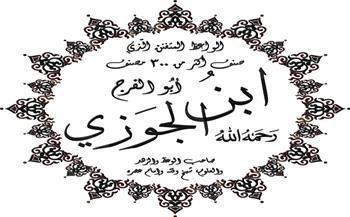 الواعظ المتفنن الذي
صنف أكثر من ٣٠٠ مصنف
أبو الفرج
ابنُ الجَوزي
رَحمَهُ اللهُ
صاحب الوعظ والزهد
شيخ وقته وإمام عصره